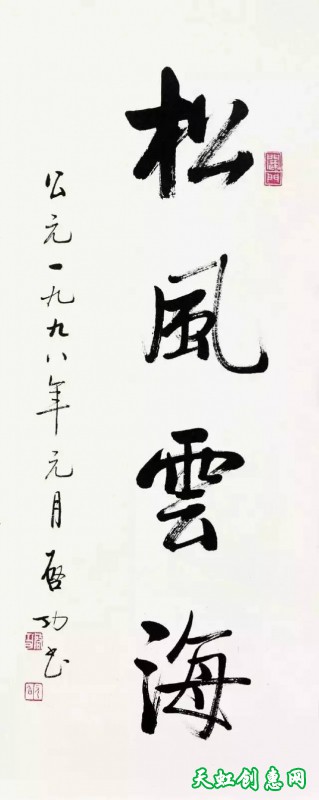 松風雲海
公元一九九八年元月啓功书
天虹创惠网